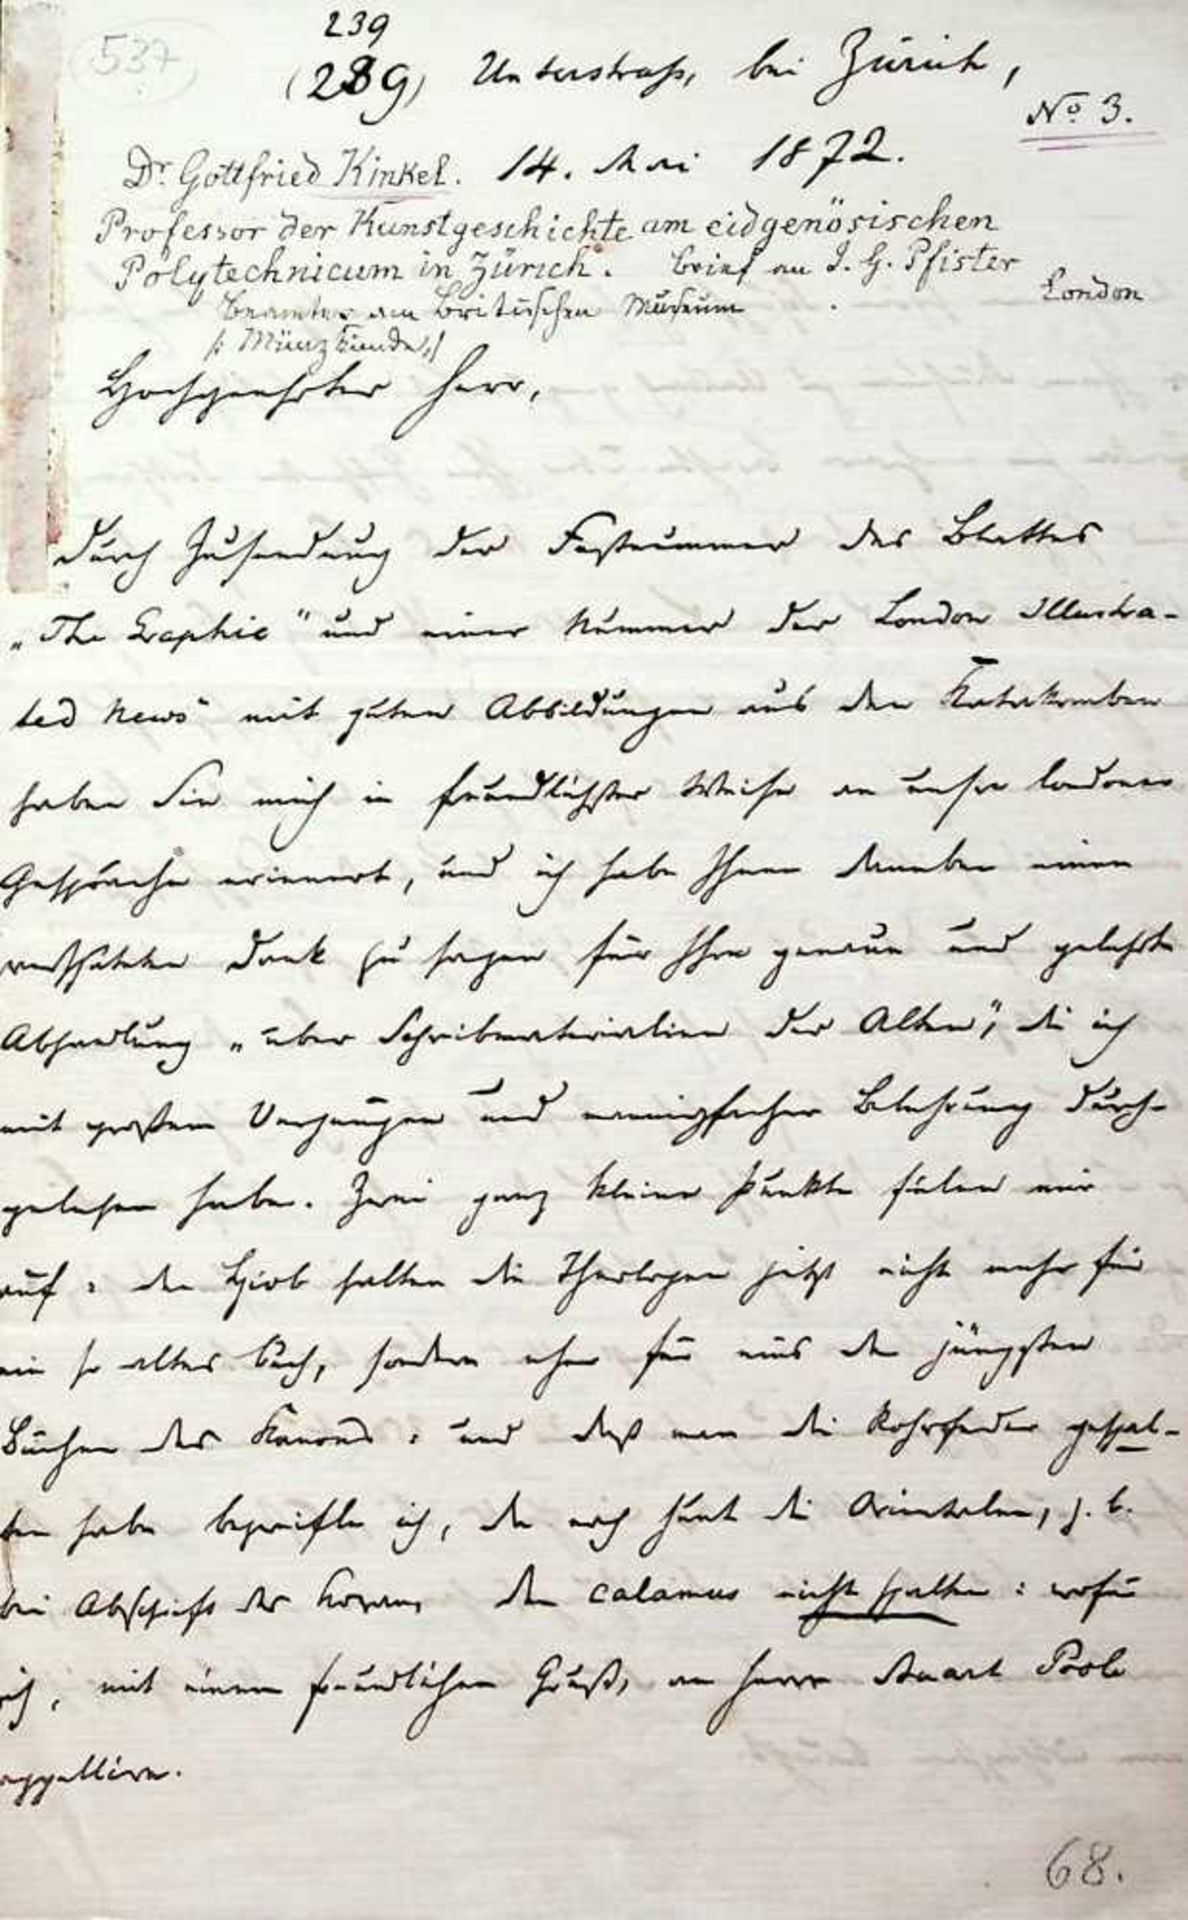 537
239
(289) Unterstrass, bei Zürich,
No 3.
Dr. Gottfried Kinkel. 14. Mai 1872.
Professor der Kunstgeschichte am eidgenösischen
Polytechnicum in Zürich. Brief an I. G. Pfister
London
Beamter am Britischen Museum
/: Münzkunde :/
Hochgeehrter Herr,
Durch Zusendung der Festnummer des Blattes
„The Graphic" und einer Nummer der London Illustra-
ted News" mit guten Abbildungen aus den Katakomben
haben Sie mich in freundlichster Weise an unsre londoner
Gespräche erinnert, und ich habe Ihnen daneben einen
verspäteten Dank zu sagen für Ihre genaue und gelehrte
Abhandlung „über Schreibmaterialien der Alten", die ich
mit großem Vergnügen und mannigfacher Belehrung durch-
gelesen habe. Zwei ganz kleine Punkte fielen mir
auf: den Hiob halten die Theologen jetzt nicht mehr für
ein so altes Buch, sondern eher für eins der jüngsten
Bücher des Kanons: und daß man die Rohrfeder gespal-
ten habe bezweifle ich, da noch heut die Orientalen, z. b.
bei Abschrift des Korans, den calamus nicht spalten: wofür
ich, mit einem freundlichen Gruß, an Herrn Stuart Poole
appellire.
68.